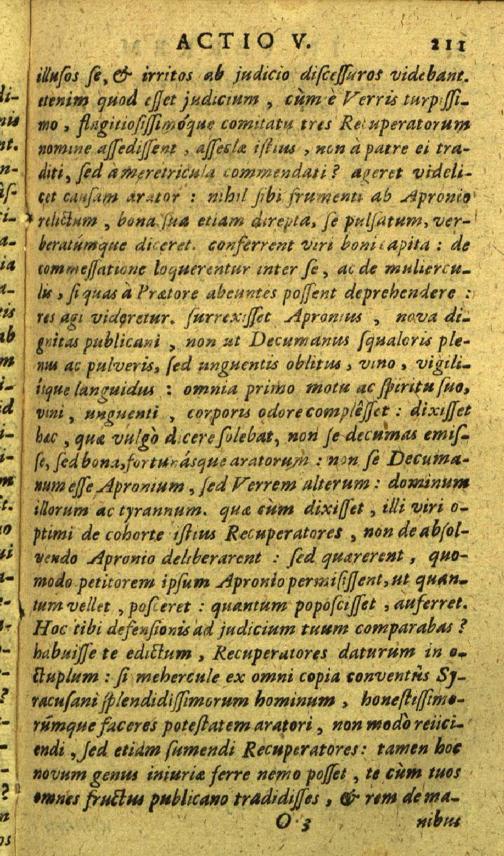 ACTIO V. 211
illusos se, & irritos ab judicio discessuros videbant.
etenim quod esset judicium, cùm è Verris turpissi-
mo, flagitiosissimóque comitatu tres Recuperatorum
nomine assedissent, asseslæ istius, non à patre ei tra-
diti, sed à meretricula commendati? ageret videli-
cet causam arator: nihil sibi frumenti ab Apronio
relictum, bona sua etiam direpta, se pulsatum, ver-
beratúmque diceret. conferrent viri boni capita: de
commessatione loquerentur inter se, ac de muliercu-
lis, si quas à Prætore abeuntes possent deprehendere:
res agi videretur. surrexisset Apronius, nova di-
gnitas publicani, non ut Decumanus squaloris ple-
nus ac pulveris, sed unguentis oblitus, vino, vigili-
isque languidus: omnia primo motu ac spiritu suo,
vini, unguenti, corporis odore complêsset: dixisset
hæc, quæ vulgò dicere solebat, non se decumas emis-
se, sed bona, fortunásque aratorum: non se Decuma-
num esse Apronium, sed Verrem alterum: dominum
illorum ac tyrannum. quæ cùm dixisset, illi viri o-
ptimi de cohorte istius Recuperatores, non de absol-
vendo Apronio deliberarent: sed quærerent, quo-
modo petitorem ipsum Apronio permisissent, ut quan-
tum vellet, posceret: quantum poposcisset, auferret.
Hoc tibi defensionis ad judicium tuum comparabas?
habuisse te edictum, Recuperatores daturum in o-
ctuplum: si mehercule ex omni copia conventûs Sy-
racusani splendidissimorum hominum, honestissimo-
rúmque faceres potestatem aratori, non modò reiici-
endi, sed etiam sumendi Recuperatores: tamen hoc
novum genus iniuriæ ferre nemo posset, te cùm tuos
omnes fructus publicano tradidisses, & rem de ma-
O 3 nibus